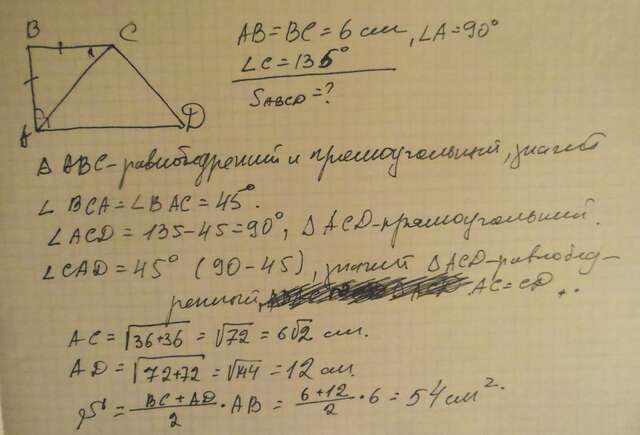 B C
A D
AB=BC=6 см, ∠A=90°
∠C=135°
S_ABCD=?
Δ ABC-равнобедренний и прямоугольний, значит
∠ BCA=∠BAC=45°.
∠ACD=135-45=90°, ΔACD-прямоугольний.
∠CAD=45° (90-45), значит ΔACD-равнобед-
ренний, AC=CD.
AC=√36+36=√72=6√2 см.
AD=√72+72=√144=12 см.
S=(BC+AD)/2·AB=(6+12)/2·6=54 см².